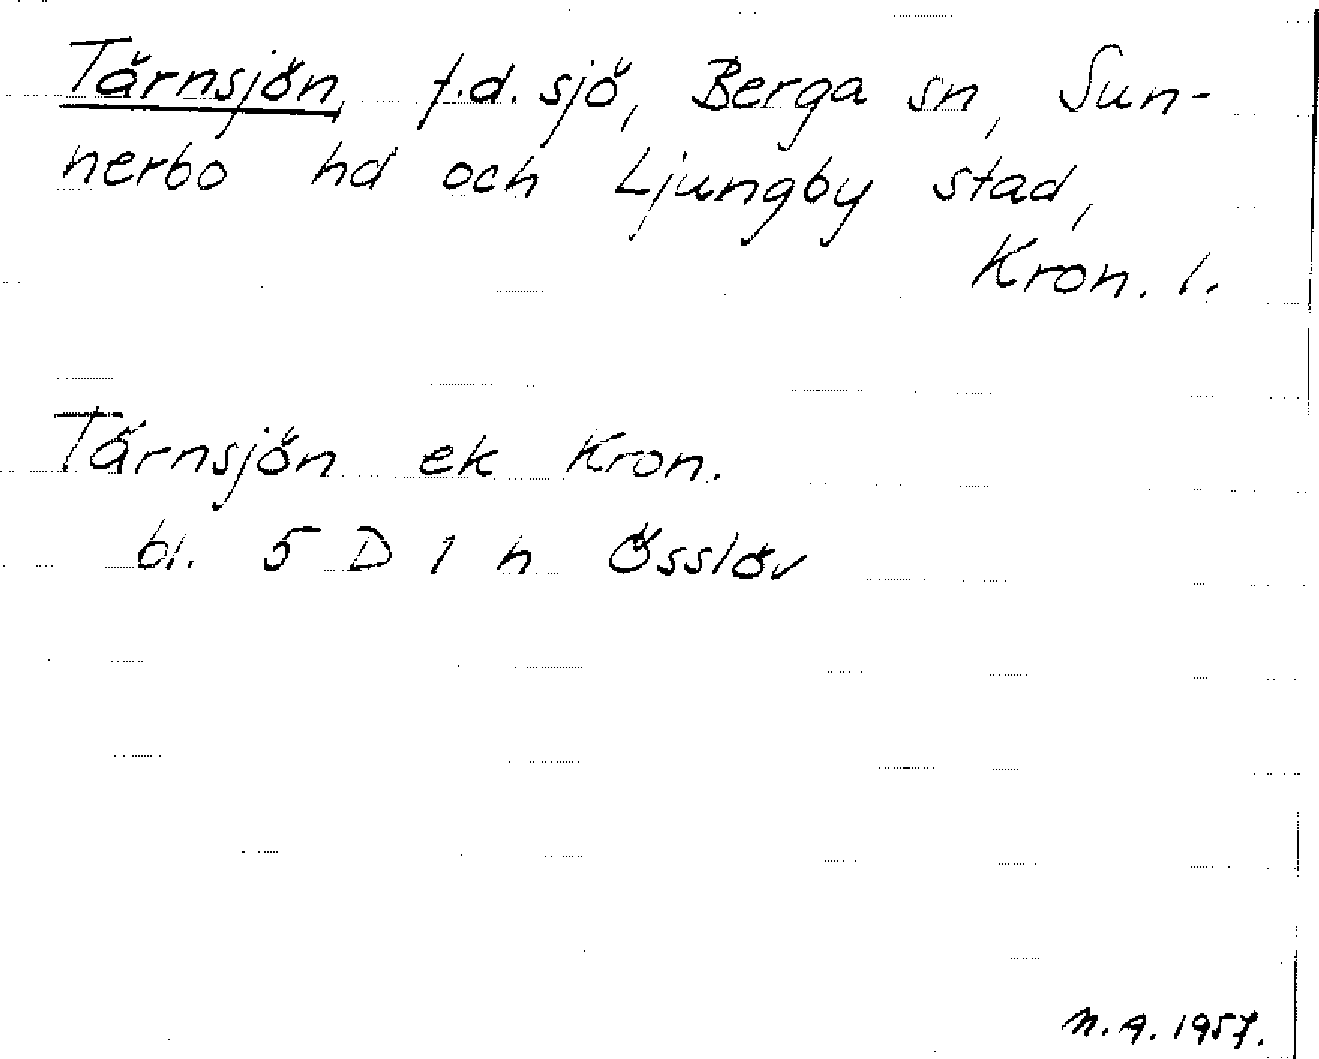 Tärnsjön, f.d. sjö, Berga sn, Sun-
nerbo hd och Ljungby stad,
Kron. l.
Tärnsjön ek Kron.
bl. 5 D 1 h Össlöv
N.A. 1957.